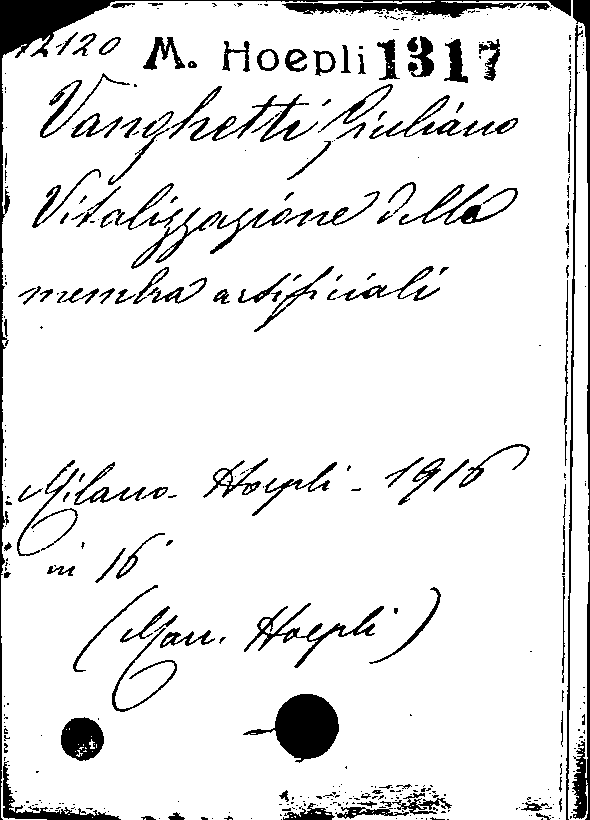 12120 M. Hoepli 1317
Vanghetti Giuliano
Vitalizzazione delle
membra artificiali
Milano - Hoepli - 1916
in 16°
(Man. Hoepli)